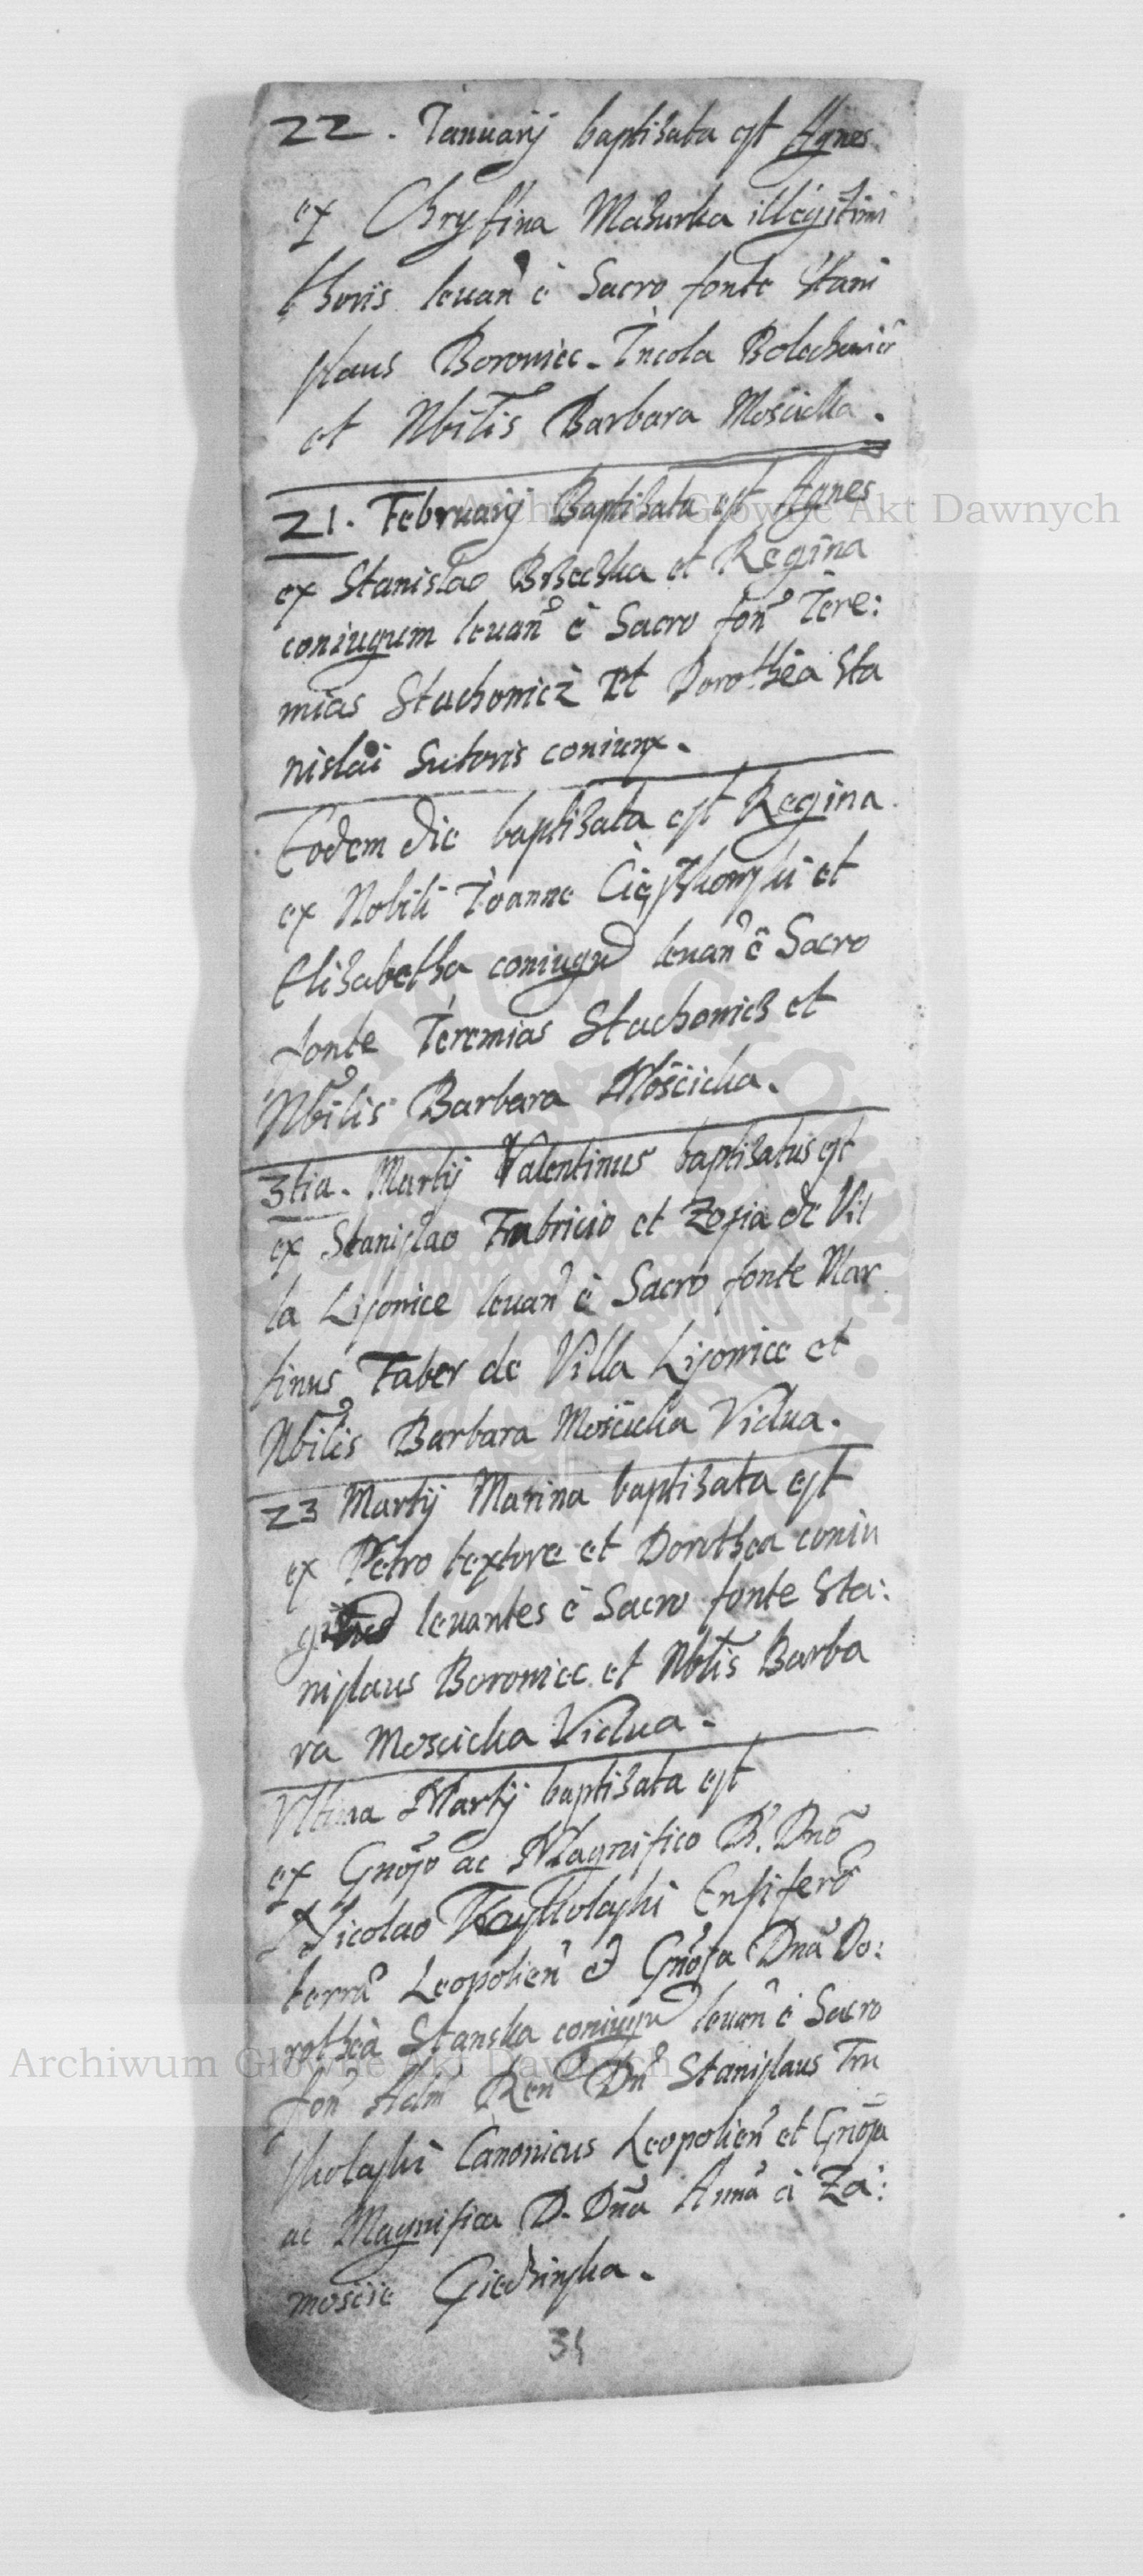 22. Januarij baptisata est Agnes
ex Chrystina Mazurka illegitimi
thoris levan è Sacro fonte Stani
slaus Boroviec Incola Bolechovicz
et Nbilis Barbara Mościcka.
21. Februarij Baptisata est Agnes
ex Stanislao Brzeczka et Regina
coniugum levan è Sacro fon Iere:
mias Stachovicz Et Dorothea Sta
nislai Sutoris coniunx.
Eodem die baptisata est Regina
ex Nobili Ioanne Cięszkowski et
Elisabetha coniugu levan è Sacro
fonte Ieremias Stachovicz et
Nbilis Barbara Mościcka.
3tia. Martij Valentinus baptisatus est
ex Stanislao Fabricio et Zofia de Vil
la Lisovice levan è Sacro fonte Mar
tinus Faber de Villa Lisovice et
Nbilis Barbara Mościcka Vidua.
23 Martij Marina baptisata est
ex Petro textore et Dorothea coniu
levantes è Sacro fonte Sta:
nislaus Boroviec et Nbilis Barba
ra Moscicka Vidua.
Ultima Martij baptisata est
ex Gnoso ac Magnifico D. Dno
Nicolao Ensifero
terra Leopolien et Gnosa Dna Do:
rothea Stanska coniugu levan è Sacro
fon Adm Ren Dn Stanislaus Tru
skolaski Canonicus Leopolien et Gnosa
ac Magnifica D. Dna Anna à Za:
moscie Giedzinska.
34
Archiwum Główne Akt Dawnych
Archiwum Główne Akt Dawnych